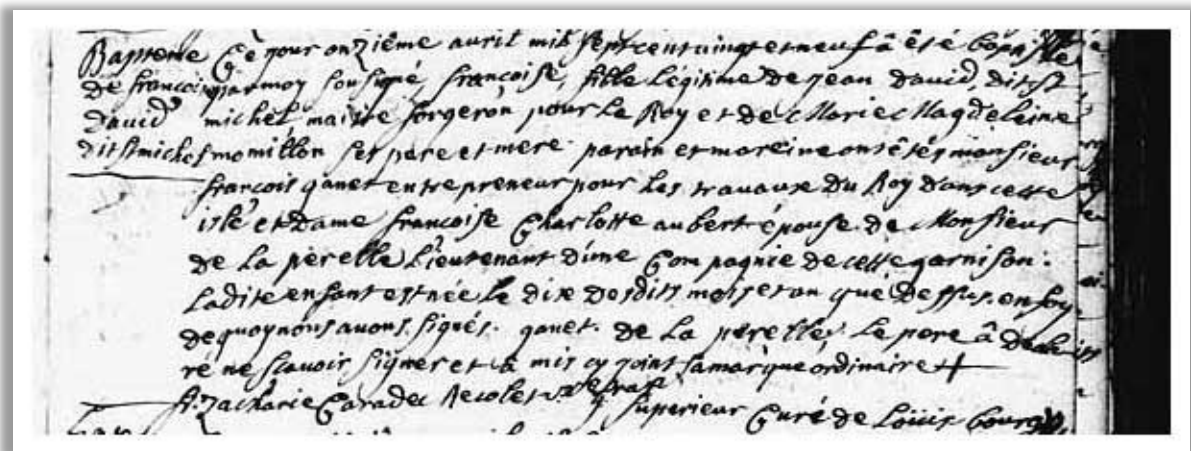 Bapteme Ce jour onzième avril mil sept cent vingt et neuf â été baptisée
de françoise par moy sousigné, françoise, fille légitime de jean david, dit st
david michel, maitre forgeron pour Le Roy et de Marie Magdeleine
dit st michel momillon ses pere et mere. parain et mareine ont étés monsieur
francois ganet entrepreneur pour Les travaux du Roy dans cette
isle et dame françoise Charlotte aubert épouse de Monsieur
de La pérelle Lieutenant d'une Compagnie de cette garnison.
Ladite enfant est née le dix desdits mois et an que dessus. en foy
de quoy nous avons signés. ganet. de La perelle. Le pere â decla
ré ne scavoir signer et â mis cy joint sa marque ordinaire +
fr. Zacharie Caradec Recolet superieur Curé de Loüis bourg